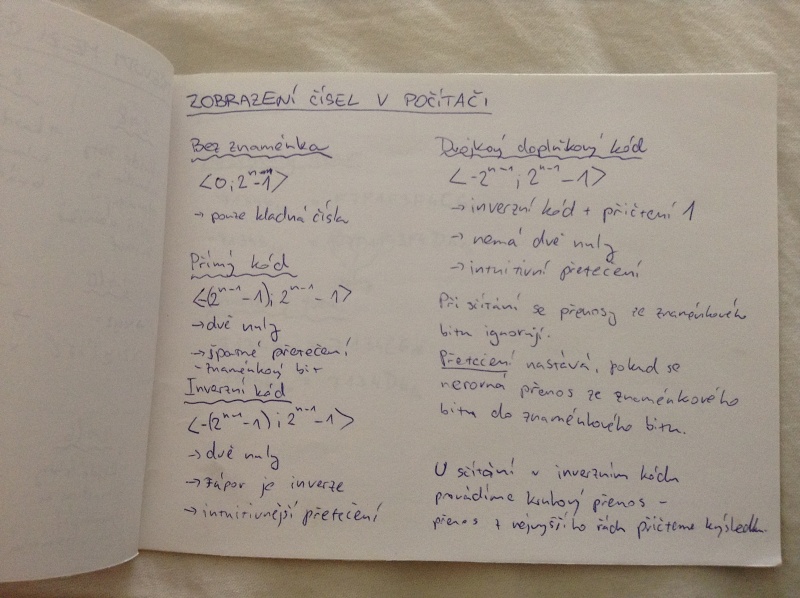 ZOBRAZENÍ ČÍSEL V POČÍTAČI
Bez znaménka
<0; 2ⁿ-1>
→ pouze kladná čísla
Přímý kód
<-(2ⁿ⁻¹-1); 2ⁿ⁻¹-1>
→ dvě nuly
→ špatné přetečení
- znaménkový bit
Inverzní kód
<-(2ⁿ⁻¹-1); 2ⁿ⁻¹-1>
→ dvě nuly
→ zápor je inverze
→ intuitivnější přetečení
Dvojkový doplňkový kód
<-2ⁿ⁻¹; 2ⁿ⁻¹-1>
→ inverzní kód + přičtení 1
→ nemá dvě nuly
→ intuitivní přetečení
Při sčítání se přenosy ze znaménkového
bitu ignorují.
Přetečení nastává, pokud se
nerovná přenos ze znaménkového
bitu do znaménkového bitu.
U sčítání v inverzním kódu
provádíme kruhový přenos -
přenos z nejvyššího řádu přičteme k výsledku.